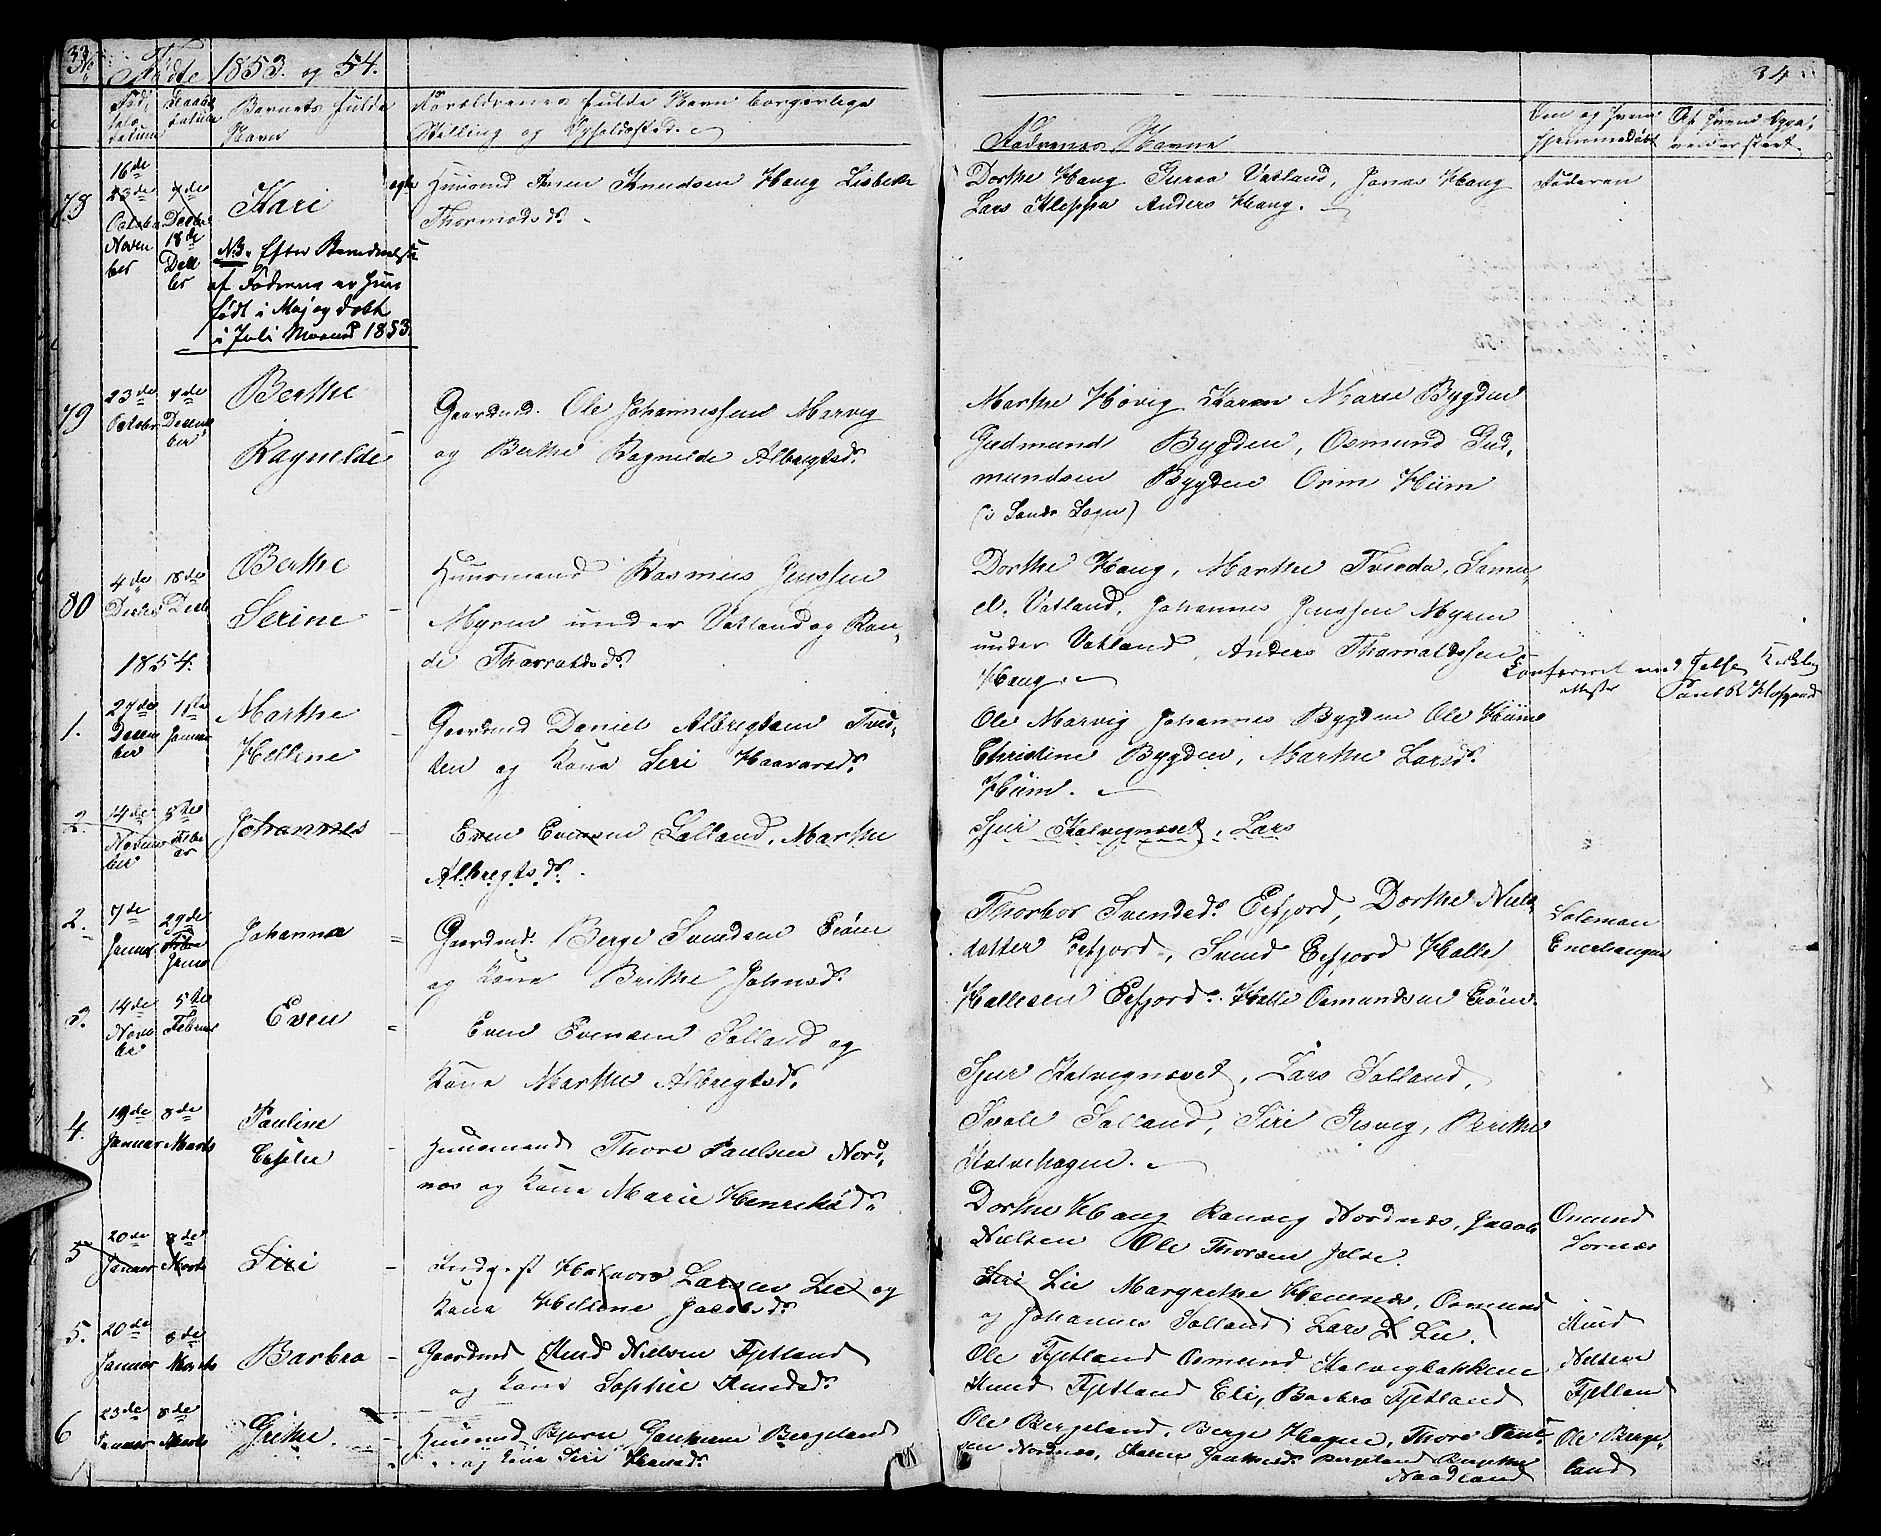 33
Fødte 1853. og 54.
34
Barnets fulde
Navn
Forældrenes fulde Navn borgerlige
Stilling og Opholdssted.
Faddernes Navne
Hjemmedøbt
78
16de
23de
October
Novem
ber
7de
Decbr
18de
Decbr
Kari
ægte
NB. Efter Bemærkelse
af Fødrene er hun
født i Maj og døbt
i Juli Maaned 1853.
Knudsen Haug Lisbeth
Thormodsd.
Dorthe Haug Vatland, Jonas Haug
Lars Kleppa Anders Haug.
Faderen
79
23de
October
7de
Decem
ber
Berthe
Ragnelde
Gaardmd. Ole Johannessen Marvig
og Berthe Ragnelde Albregtsd.
Marthe Høvig Karen Marie Bygden
Gudmund Bygden, Osmund Gud-
mundsen Bygden Orm Hiim
(i Sands Sogn)
80
4de
Decbr
18de
Decb
Berthe
Serine
Huusmand Rasmus Jenssen
Myren under Vatland og Ran-
de Thorvaldsd.
Dorthe Haug, Marthe Tveda, Samu-
el Vatland, Johannes Jenssen Myren
under Vatland, Anders Thorvaldssen
Haug.
1854.
Confereret med Jelse
1.
27de
Decem
ber
11te
Januar
Marthe
Hellene
Gaardmd Daniel Albregtsen Tved-
ten og Kone Seri Haavarsd.
Ole Marvig Johannes Bygden Ole Hiim
Christine Bygden, Marthe Larsd.
Hiim.
2.
14de
Novem
ber
5te
Febru
ar
Johannes
Even Evensen Salland, Marthe
Albregtsd.
Sjur Kalvignæset, Lars
2.
7de
Januar
29de
Janu
Johanna
Gaardmd. Berge Svendsen Eiøen
og Kone Berthe Johnsd.
Thorbor Svendsd. Eefjord, Dorthe Niels-
datter Eefjord, Svend Eefjord Halle
Hallesen Eefjord. Halle Osmundsen Eiøen
Soleman
3.
14de
Novem
ber
5te
Februar
Even
Even Evensen Salland og
Kone Marthe Albregtsd.
Sjur Kalvignæset, Lars Salland,
Salland, Siri Risvig, Berthe
Kalvehagen.
4.
19de
Januar
8de
Marts
Pauline
Huusmand Thore Paulsen Nord-
næs og Kone Marie Henriksd.
Dorthe Haug Ranvig Nordnæs, Jacob
Nielsen Ole Thorsen Jelse.
Osmund
5
20de
Januar
8de
Marts
Siri
Halvor Larsen Lie og
Kone Hellene Jacobsd.
Siri Lie Margrethe Hennæs, Osmund
og Johannes Salland Lars L Lie.
5.
20de
Januar
8de
Marts
Barbra
Gaardmd Knud Nielsen Fjetland
og Kone Sophie Knudsd.
Ole Fjetland Osmund Kalvigbakken
Knud Fjetland Eli, Barbra Fjetland
Knud
Nielsen
Fjetlan
6
23de
Januar
8de
Marts
Grethe.
Huusmd Bjørn Bergeland
og Kone Siri
Ole Bergeland, Berge Hagen, Thore Paul-
sen Nordnæs, Bergeland
Naadland
Ole Berge-
land